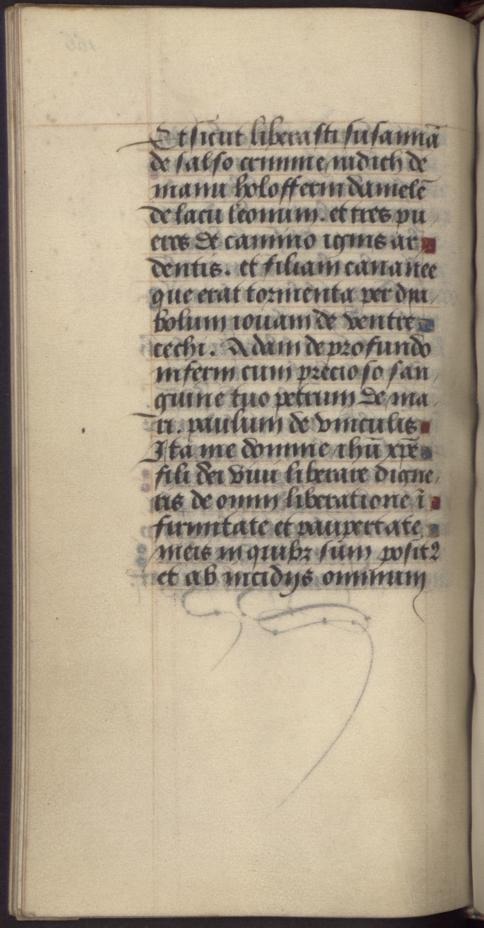 Et sicut liberasti susannā
de falso crimine, iudich de
manu holofferni danielē
de lacu leonum. et tres pu
eros de camino ignis ar
dentis. et filiam cananee
que erat tormenta per dya
bolum iouam de ventre
cechi. Adam de profundo
inferni cum precioso san
guine tuo petrum de ma
ri. paulum de vinculis
Ita me domine ihū xpē
fili dei viui liberare digne
ris de omni liberatione ī
firmitate et paupertate
meis in quibꝫ sum posit9
et ab incidijs omnium